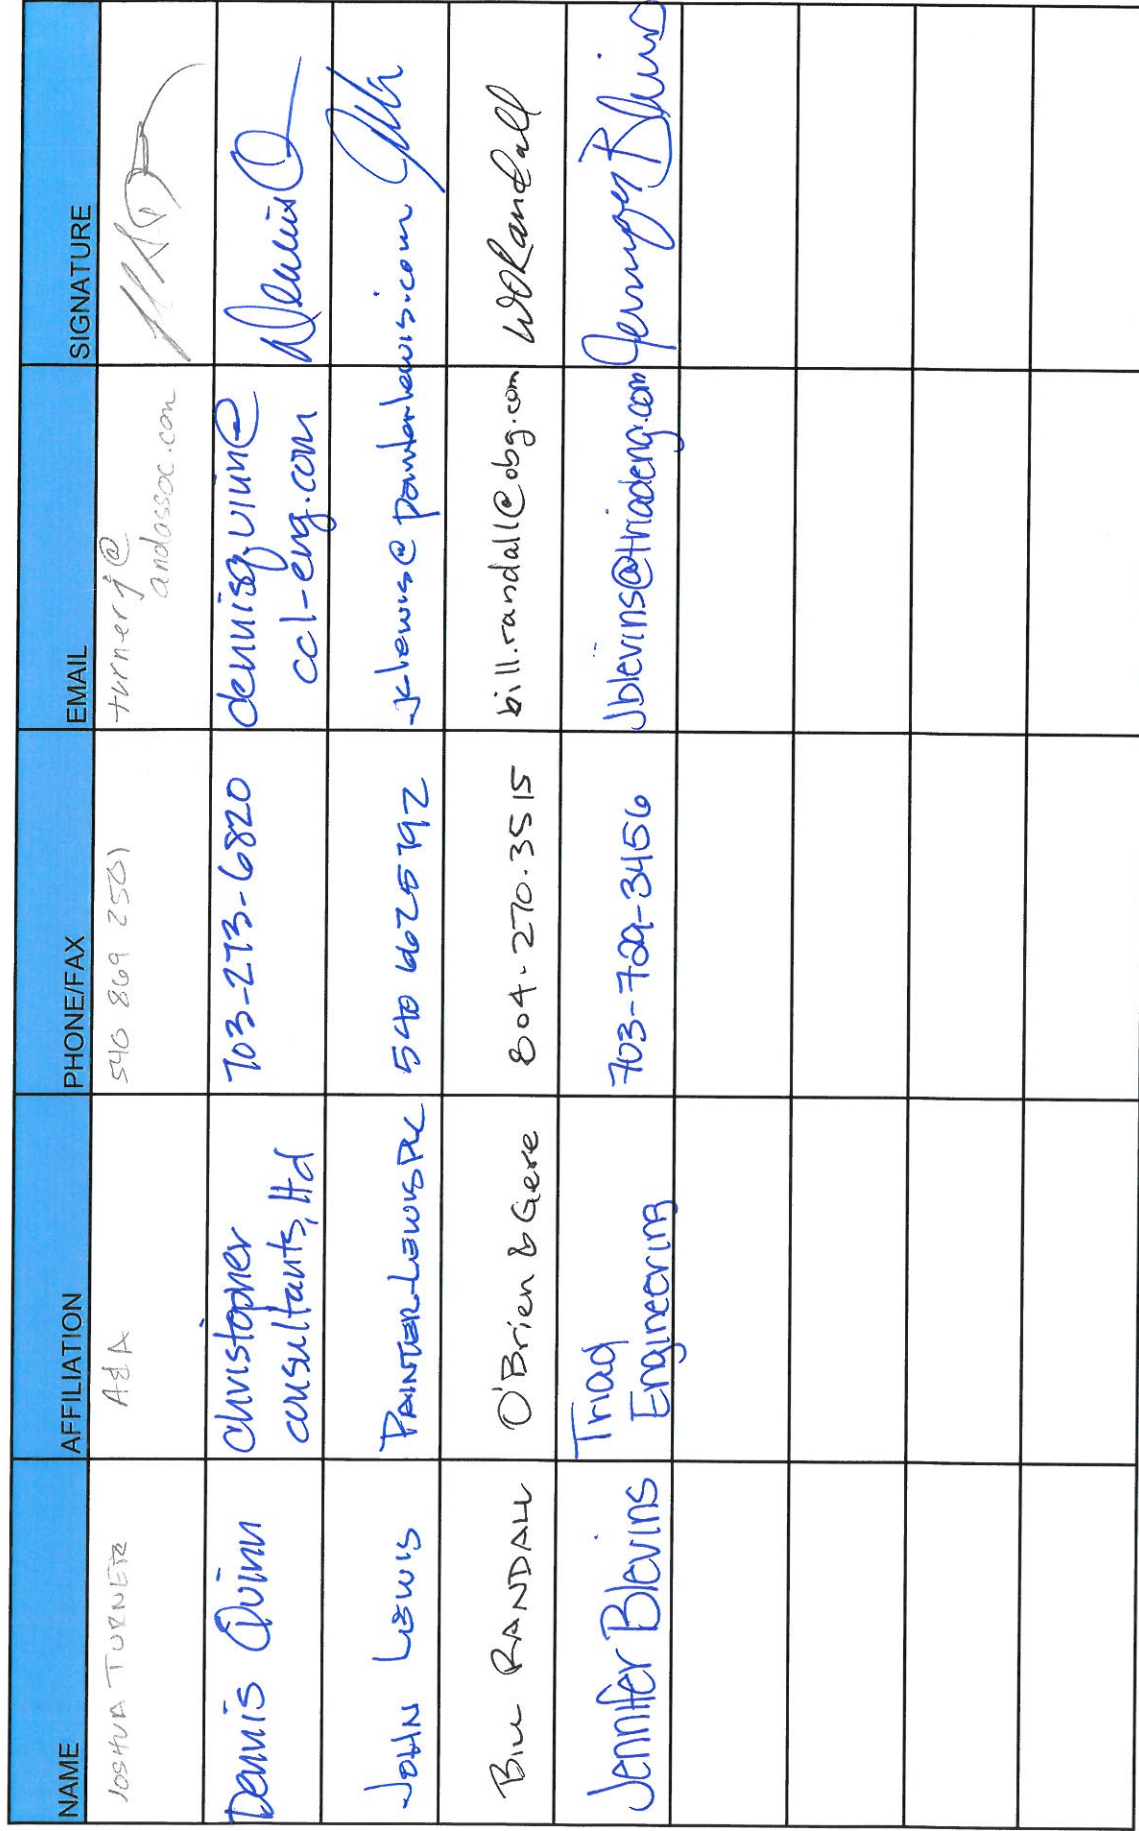 NAME AFFILIATION PHONE/FAX EMAIL SIGNATURE
JOSHUA TURNER A&A 540 869 2501 turnerj@
andassoc.com
Dennis Quinn christopher 703-273-6820 dennisquinn@ Dennis Q
consultants, ltd ccl-eng.com
JOHN LEWIS PAINTER-LEWIS PLC 540 662 5792 jclewis@painterlewis.com
BILL RANDALL O'Brien & Gere 804.270.3515 bill.randall@obg.com WORandall
Jennifer Blevins Triad 703-729-3456 jblevins@triadeng.com Jennifer Blevins
Engineering